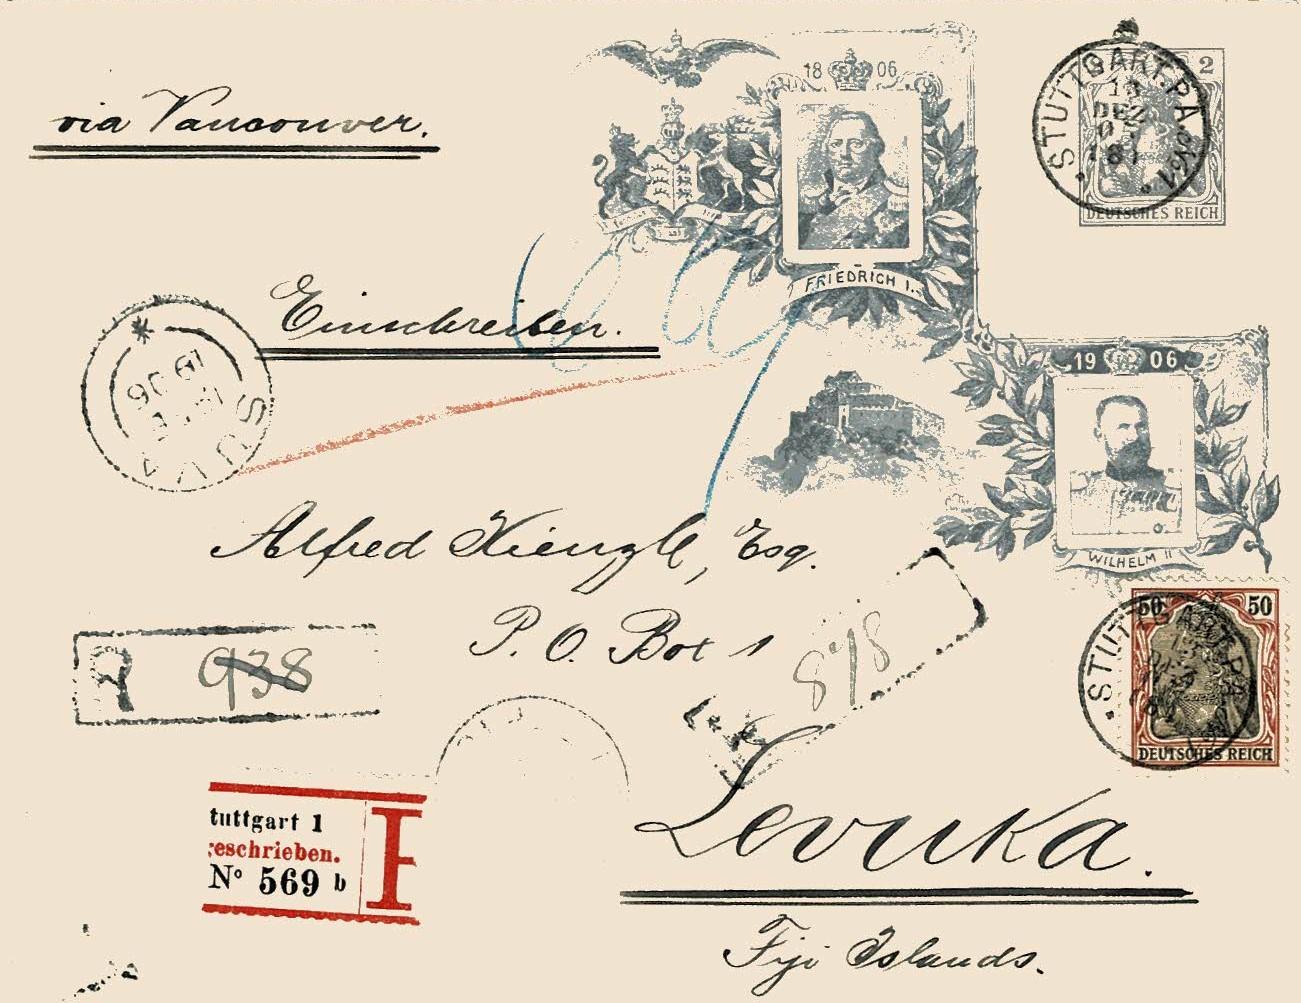 via Vancouver.
18 06
FRIEDRICH I.
STUTTGART. P.A. No1
13
DEZ
2
DEUTSCHES REICH
Einschreiben.
1906
WILHELM II
SUVA
06
Alfred Kienzle, Esq.
P. O. Box 1
R 938
878
50 50
STUTTGART. P.A.
DEUTSCHES REICH
tuttgart 1
eschrieben.
No 569 b
Levuka.
Fiji Islands.